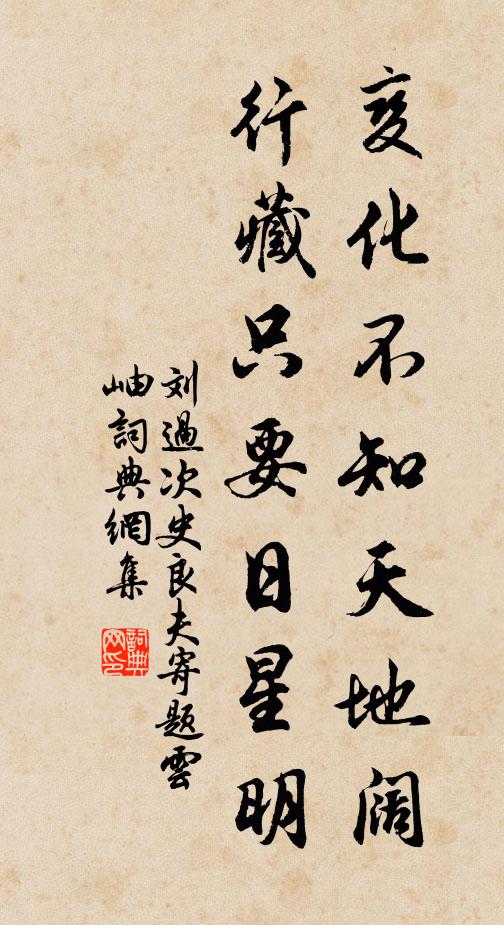 变化不知天地阔
行藏只要日星明
刘過次史良夫寄題雲
岫詞典網集
詞典
网印